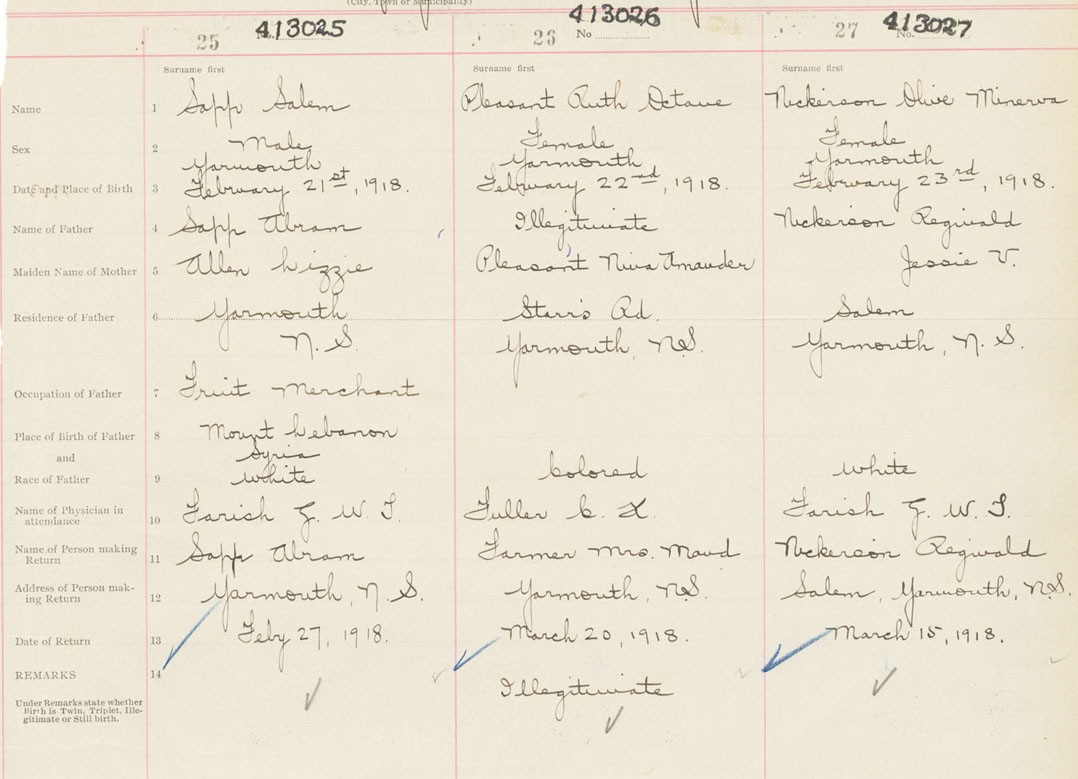 (City, Town or Municipality)
25 No. 413025
26 No. 413026
27 No. 413027
Surname first Surname first Surname first
Name 1 Sapp Salem Pleasant Ruth Octave Nickerson Olive Minerva
Sex 2 Male Female Female
Yarmouth Yarmouth Yarmouth
Date and Place of Birth 3 February 21st, 1918. February 22nd, 1918. February 23rd, 1918.
Name of Father 4 Sapp Abram Illegitimate Nickerson Reginald
Maiden Name of Mother 5 Allen Lizzie Pleasant Nina Amander Jessie V.
Residence of Father 6 Yarmouth Starr's Rd. Salem
N. S. Yarmouth, N.S. Yarmouth, N. S.
Occupation of Father 7 Fruit Merchant
Place of Birth of Father 8 Mount Lebanon
and Syria
Race of Father 9 White Colored White
Name of Physician in
attendance 10 Farish G. W. T. Fuller C. L. Farish G. W. T.
Name of Person making
Return 11 Sapp Abram Farmer Mrs. Maud Nickerson Reginald
Address of Person mak-
ing Return 12 Yarmouth, N. S. Yarmouth, N.S. Salem, Yarmouth, N.S.
Date of Return 13 Feby 27, 1918. March 20, 1918. March 15, 1918.
REMARKS 14 Illegitimate
Under Remarks state whether
Birth is Twin, Triplet, Ille-
gitimate or Still birth.